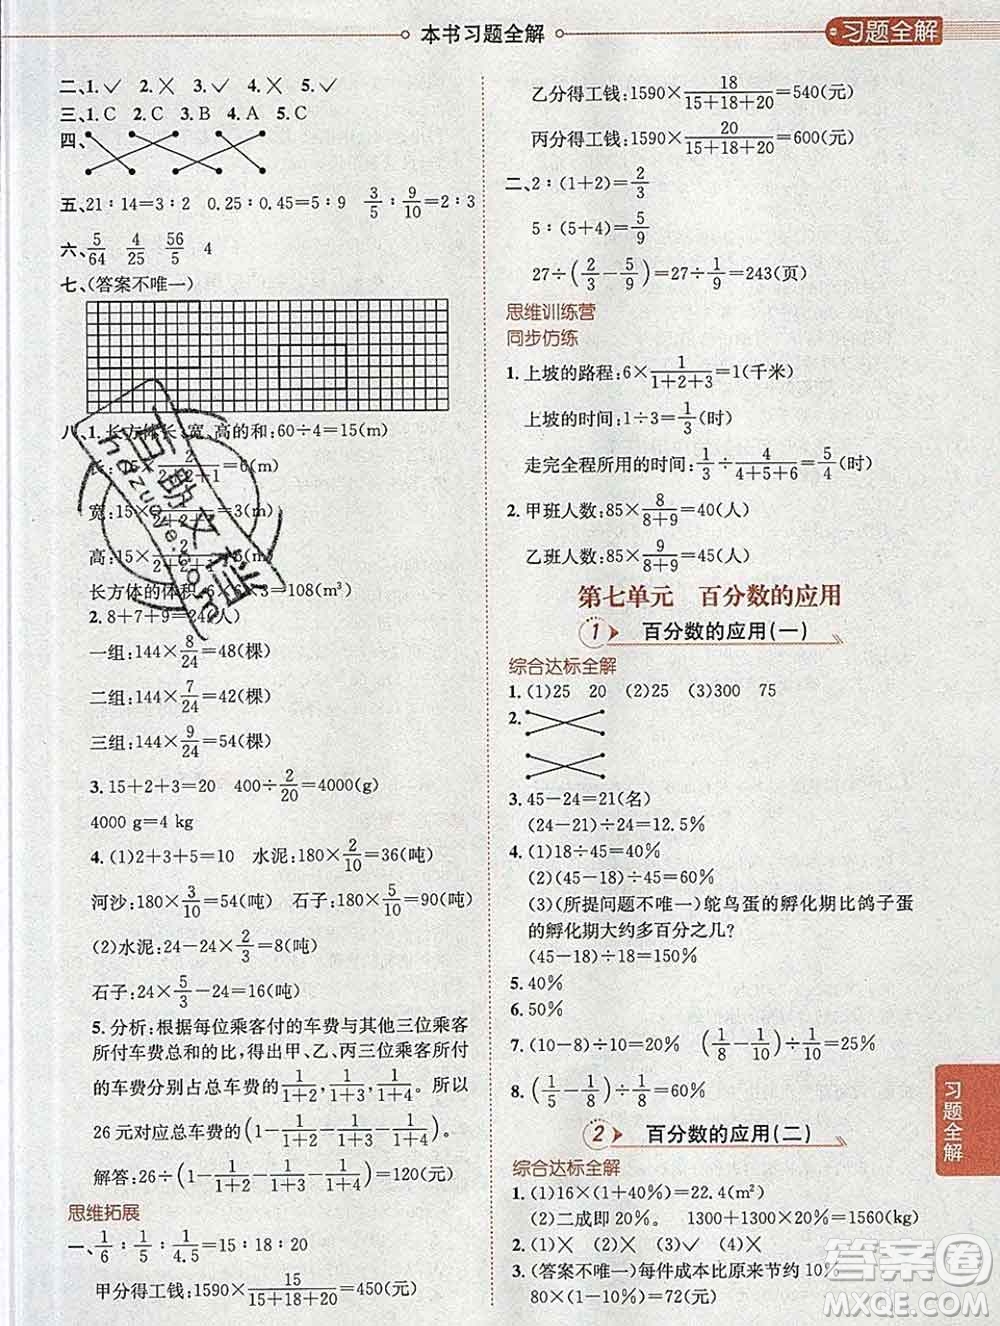 本书习题全解
习题全解
二、1.✓ 2.✗ 3.✓ 4.✗ 5.✓
三、1.C 2.C 3.B 4.A 5.C
四、
五、21∶14=3∶2 0.25∶0.45=5∶9 3/5∶9/10=2∶3
六、5/64 4/25 56/5 4
七、(答案不唯一)
八、1.长方体长、宽、高的和:60÷4=15(m)
长:15×2/(2+2+1)=6(m)
宽:15×2/(2+2+1)=6(m)
高:15×
长方体的体积:6×6×3=108(m³)
2.8+7+9=24(人)
一组:144×8/24=48(棵)
二组:144×7/24=42(棵)
三组:144×9/24=54(棵)
3.15+2+3=20 400÷2/20=4000(g)
4000 g=4 kg
4.(1)2+3+5=10 水泥:180×2/10=36(吨)
河沙:180×3/10=54(吨) 石子:180×5/10=90(吨)
(2)水泥:24-24×2/3=8(吨)
石子:24×5/3-24=16(吨)
5.分析:根据每位乘客付的车费与其他三位乘客
所付车费总和的比,得出甲、乙、丙三位乘客所付
的车费分别占总车费的1/(1+2),1/(1+3),1/(1+4)。所以
26元对应总车费的(1-1/(1+2)-1/(1+3)-1/(1+4))。
解答:26÷(1-1/(1+2)-1/(1+3)-1/(1+4))=120(元)
思维拓展
一、1/6∶1/5∶1/4.5=15∶18∶20
甲分得工钱:1590×15/(15+18+20)=450(元)
乙分得工钱:1590×18/(15+18+20)=540(元)
丙分得工钱:1590×20/(15+18+20)=600(元)
二、2∶(1+2)=2/3
5∶(5+4)=5/9
27÷(2/3-5/9)=27÷1/9=243(页)
思维训练营
同步仿练
1.上坡的路程:6×1/(1+2+3)=1(千米)
上坡的时间:1÷3=1/3(时)
走完全程所用的时间:1/3÷4/(4+5+6)=5/4(时)
2.甲班人数:85×8/(8+9)=40(人)
乙班人数:85×9/(8+9)=45(人)
第七单元 百分数的应用
1 百分数的应用(一)
综合达标全解
1.(1)25 20 (2)25 (3)300 75
2.
3.45-24=21(名)
(24-21)÷24=12.5%
4.(1)18÷45=40%
(2)(45-18)÷45=60%
(3)(所提问题不唯一)鸵鸟蛋的孵化期比鸽子蛋
的孵化期大约多百分之几?
(45-18)÷18=150%
5.40%
6.50%
7.(10-8)÷10=20% (1/8-1/10)÷1/10=25%
8.(1/5-1/8)÷1/8=60%
2 百分数的应用(二)
综合达标全解
1.(1)16×(1+40%)=22.4(m²)
(2)二成即20%。 1300+1300×20%=1560(kg)
2.(1)✗ (2)✗ (3)✓ (4)✗
3.(答案不唯一)每件成本比原来节约10%
80×(1-10%)=72(元)
习题全解
百助文档
答案圈
MXQE.COM